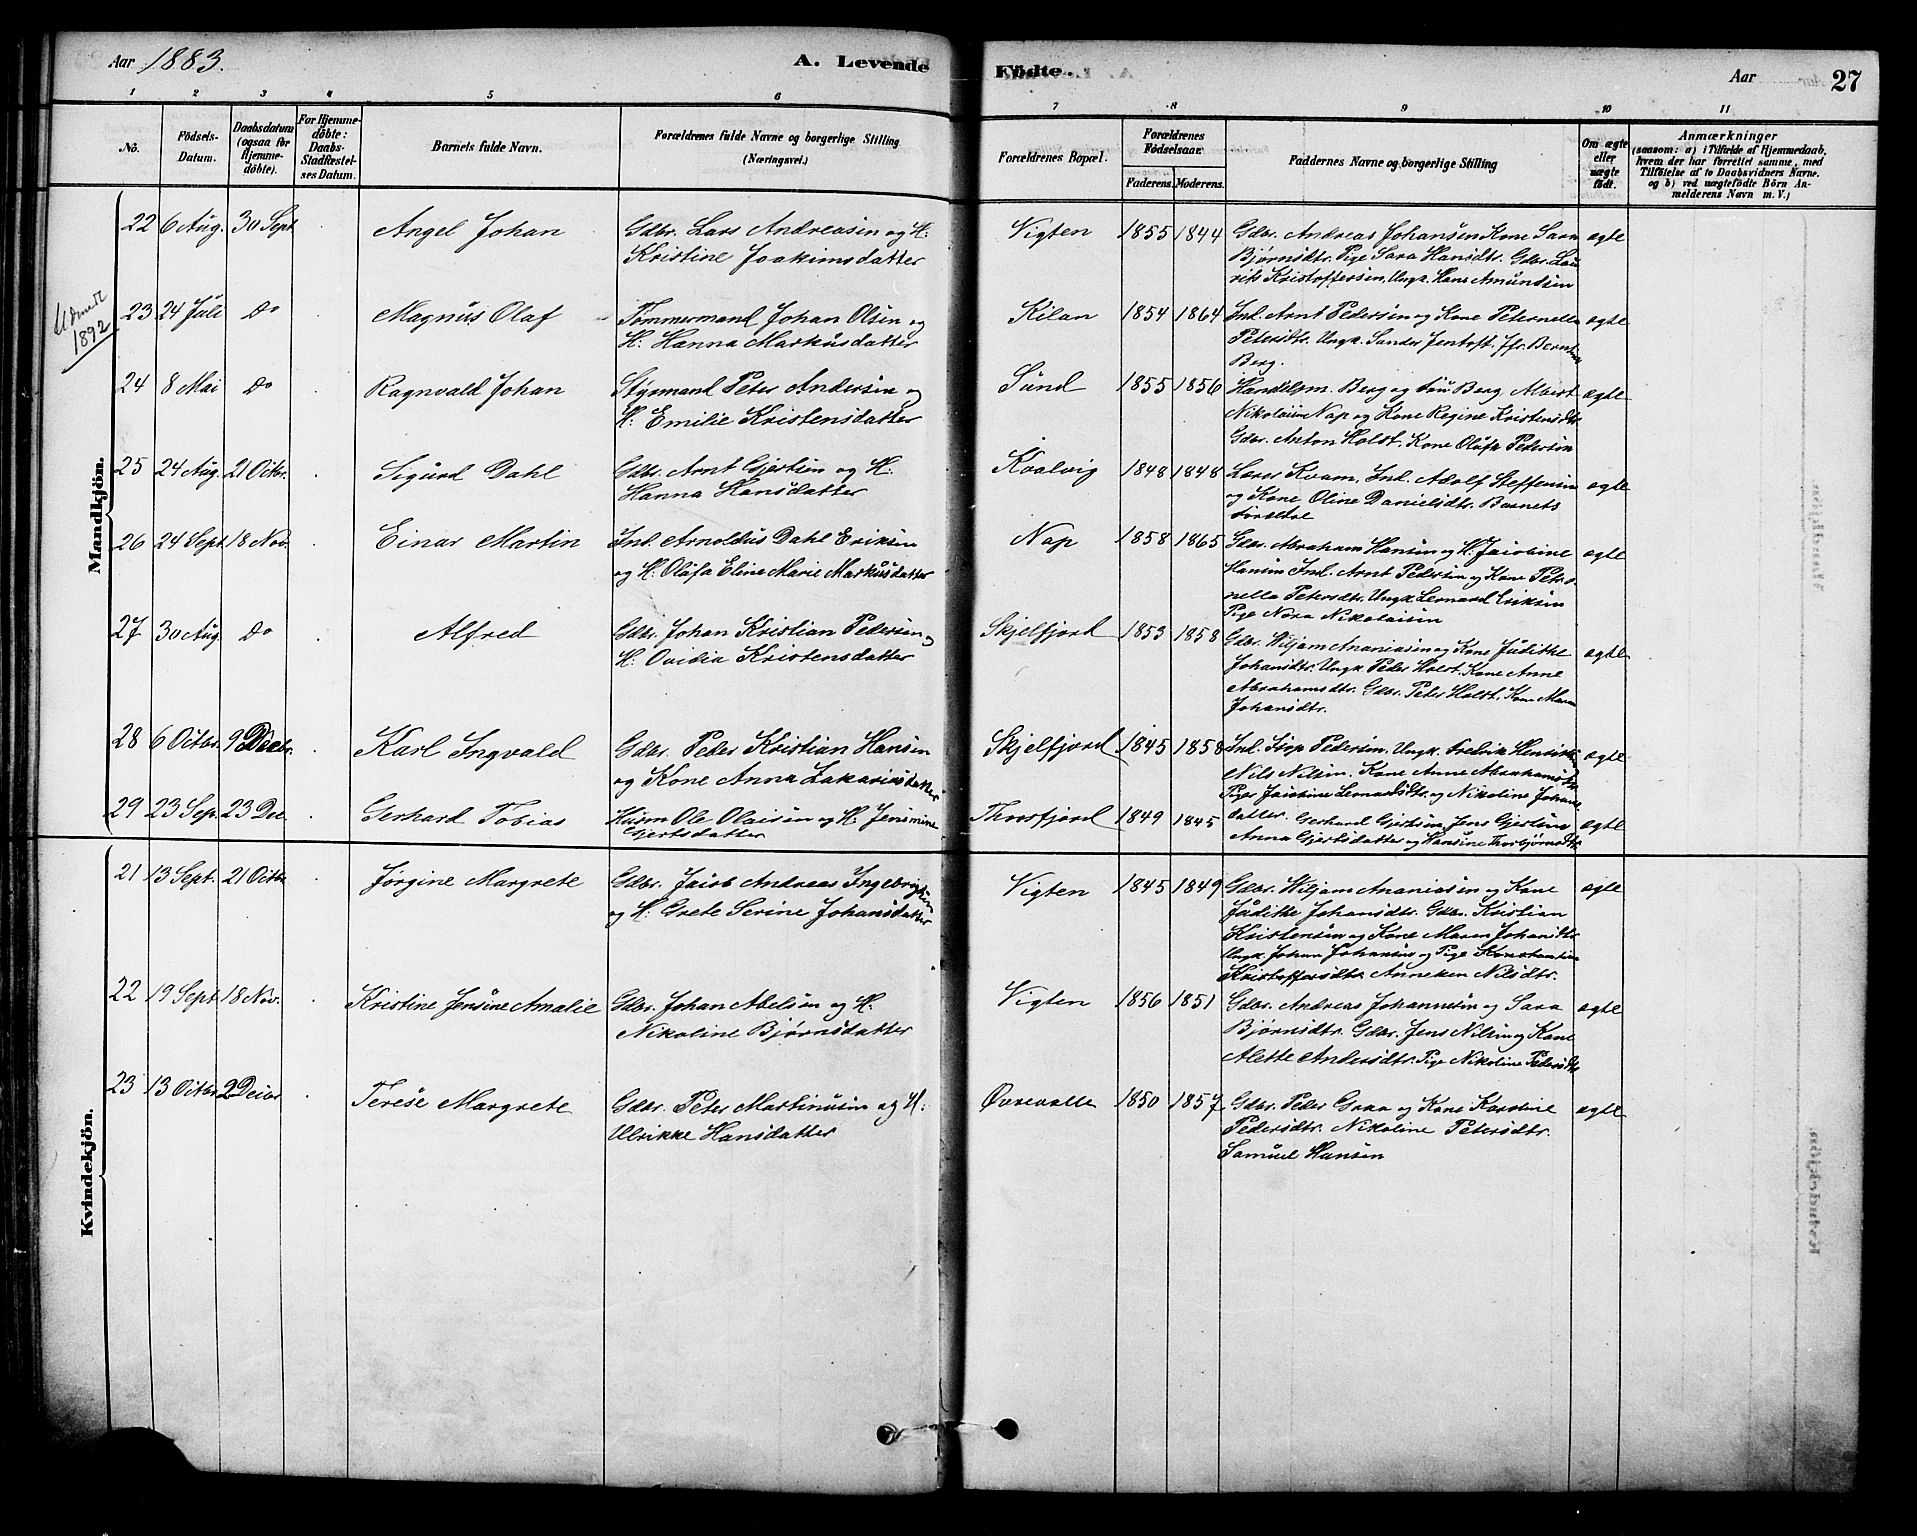 Aar 1883. A. Levende
1 2 3 4 5 6
No. Födsels-Datum. Daabsdatum (ogsaa for Hjemme-döbte). For Hjemme-döbte: Daabs-Stadfæstel-ses Datum. Barnets fulde Navn. Forældrenes fulde Navne og borgerlige Stilling (Næringsvei.)
Mandkjön.
22 6 Aug. 30 Sept. Angel Johan Gdbr. Lars Andreasen og H:
Kristine Joakimsdatter
1892
23 24 Juli Do Magnus Olaf Tømmermand Johan Olsen og
H: Hanna Markusdatter
24 8 Mai Do Ragnvald Johan Stysmand Peter Andersen og
H: Emilie Kristensdatter
25 24 Aug. 21 Octbr. Sigurd Dahl Gdbr. Arnt Gjertsen og H:
Hanna Hansdatter
26 24 Sept. 18 Nov. Einar Martin Ind. Arnoldus Dahl Eriksen
og H: Olufa Eline Marie Markusdatter
27 30 Aug. Do Alfred Gdbr. Johan Kristian Pedersen,
H: Ovidia Kristensdatter
28 6 Octbr. 9 Decbr. Karl Ingvald Gdbr. Peder Kristian Hansen
og Kone Anna Zakariasdatter
29 23 Sep. 23 Dec Gerhard Tobias Husm Ole Olaisen og H. Jensmine
Gjertsdatter
Kvindekjön.
21 13 Sept. 21 Octbr Jørgine Margrete Gdbr. Jacob Andreas Ingebrigtsen
og H: Grete Serine Johansdatter
22 19 Sept. 18 Nov. Kristine Jensine Amalie Gdbr. Johan Abelsen og H:
Nikoline Bjørnsdatter
23 13 Octbr 2 Decbr Terese Margrete Gdbr. Peter Martinusen og H:
Ulrikke Hansdatter
Födte. Aar 27
7 8 9 10 11
Forældrenes Bopæl. Forældrenes Födselsaar. Faderens. Moderens. Faddernes Navne og borgerlige Stilling Om ægte eller uægte födt. Anmærkninger
(saasom: a) i Tilfælde af Hjemmedaab,
hvem der har forrettet samme, med
Tilföielse af to Daabsvidners Navne.
og b) ved uægtefödte Börn An-
melderens Navn m. V.)
Vigten 1855 1844 Gdbr. Andreas Johansen Kone Sara ægte
Bjørnsdtr. Pige Sara Hansdtr. Gdbr. Lau
rits Kristoffersen, Ungk. Hans Amundsen
Kilan 1854 1864 Ind. Arnt Pedersen og Kone Peternella ægte
Petersdtr. Ungk. Sander Jentoft. Jfr. Berntine
Berg.
Sund 1855 1856 Handelsm. Berg og Fru Berg, Albert ægte
Nikolaisen Nap og Kone Regine Kristensdtr
Gdbr. Anton Holst, Kone Olufa Petersen
Kvalvig 1848 1848 Lærer Kvam, Ind. Adolf Steffensen ægte
og Kone Oline Danielsdtr. Barnets
Forældre
Nap 1858 1865 Gdbr. Abraham Hansen og H. Jacobine ægte
Hansen Ind. Arnt Pedersen og Kone Peter
nella Petersdtr. Ungk. Leonard Eriksen
Pige Nora Nikolaisen
Skjelfjord 1853 1858 Gdbr. Wiljam Ananiasen og Kone Judithe ægte
Johansdtr. Ungk. Peder Holst, Kone Anne
Abrahamsdtr. Gdbr. Peter Holst, Kone Maren
Johansdtr.
Skjelfjord 1845 1858 Ind. Pedersen, Ungk. Fredrik Henriksen ægte
Nils Nilsen. Kone Anne Abrahamsdtr
Piger Jacobine Leonardsdtr. og Nikoline Johans
Thorsfjord 1849 1845 datter. Gerhard Gjertsen, Jens Gjertsen ægte
Anna Gjertsdatter og Hansine Thorbjørnsdtr.
Vigten 1845 1849 Gdbr. Wiljam Ananiasen og Kone ægte
Judithe Johansdtr. Gdbr. Kristian
Kristensen og Kone Maren Johansdtr
Ungk. Johan Johansen og Pige Konstantine
Kristoffersdtr. Anneken Nilsdtr.
Vigten 1856 1851 Gdbr. Andreas Johannesen og Sara ægte
Bjørnsdtr. Gdbr. Jens Nilsen og Kone
Alette Andersdtr. Pige Nikoline Pedersdtr
Øvrevalle 1850 1857 Gdbr. Peder Graa og Kone Karoline ægte
Pedersdtr. Nikoline Petersdtr.
Samuel Hansen